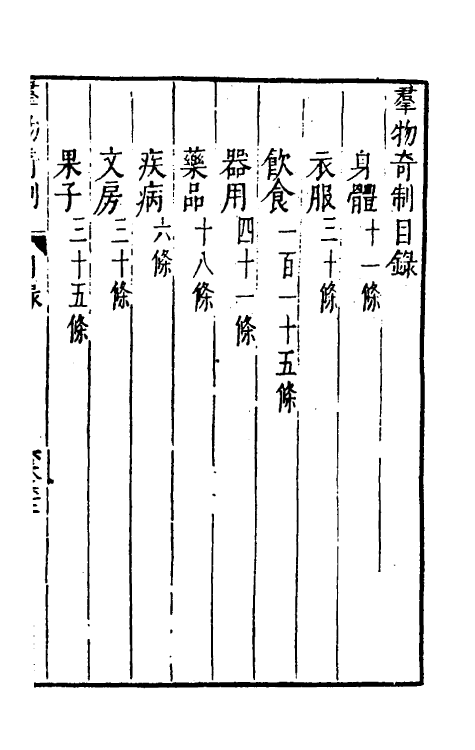 羣物奇制目錄
身體十一條
衣服三十條
飲食一百一十五條
器用四十一條
藥品十八條
疾病六條
文房三十條
果子三十五條